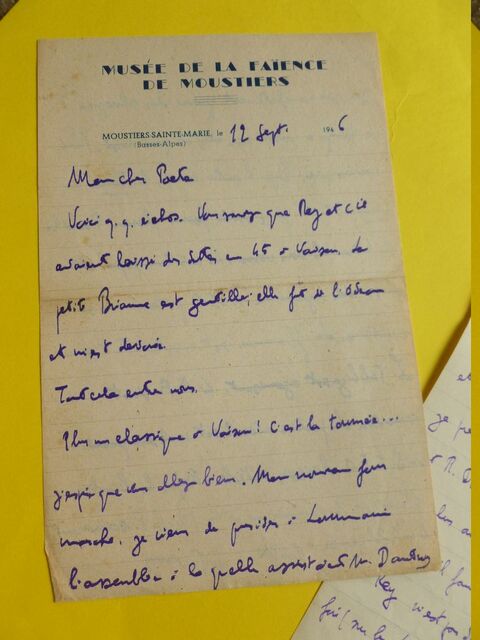 MUSÉE DE LA FAÏENCE
DE MOUSTIERS
MOUSTIERS-SAINTE-MARIE, le 12 Sept. 1946
(Basses-Alpes)
Mon cher Poète
Voici q.q. échos. Vous savez que Rey et Cie
avaient laissé des dettes en 45 à Vaison. La
petite Brianne est gentille; elle fut de l'Odéon
et m'est dévouée.
Tout cela entre nous.
Plus un classique à Vaison! C'est la tournée...
J'espère que vous allez bien. Mon nouveau
marche, je viens de présider à
l'assemblée à laquelle assistait M.
et
je
à
Rey n'est pas